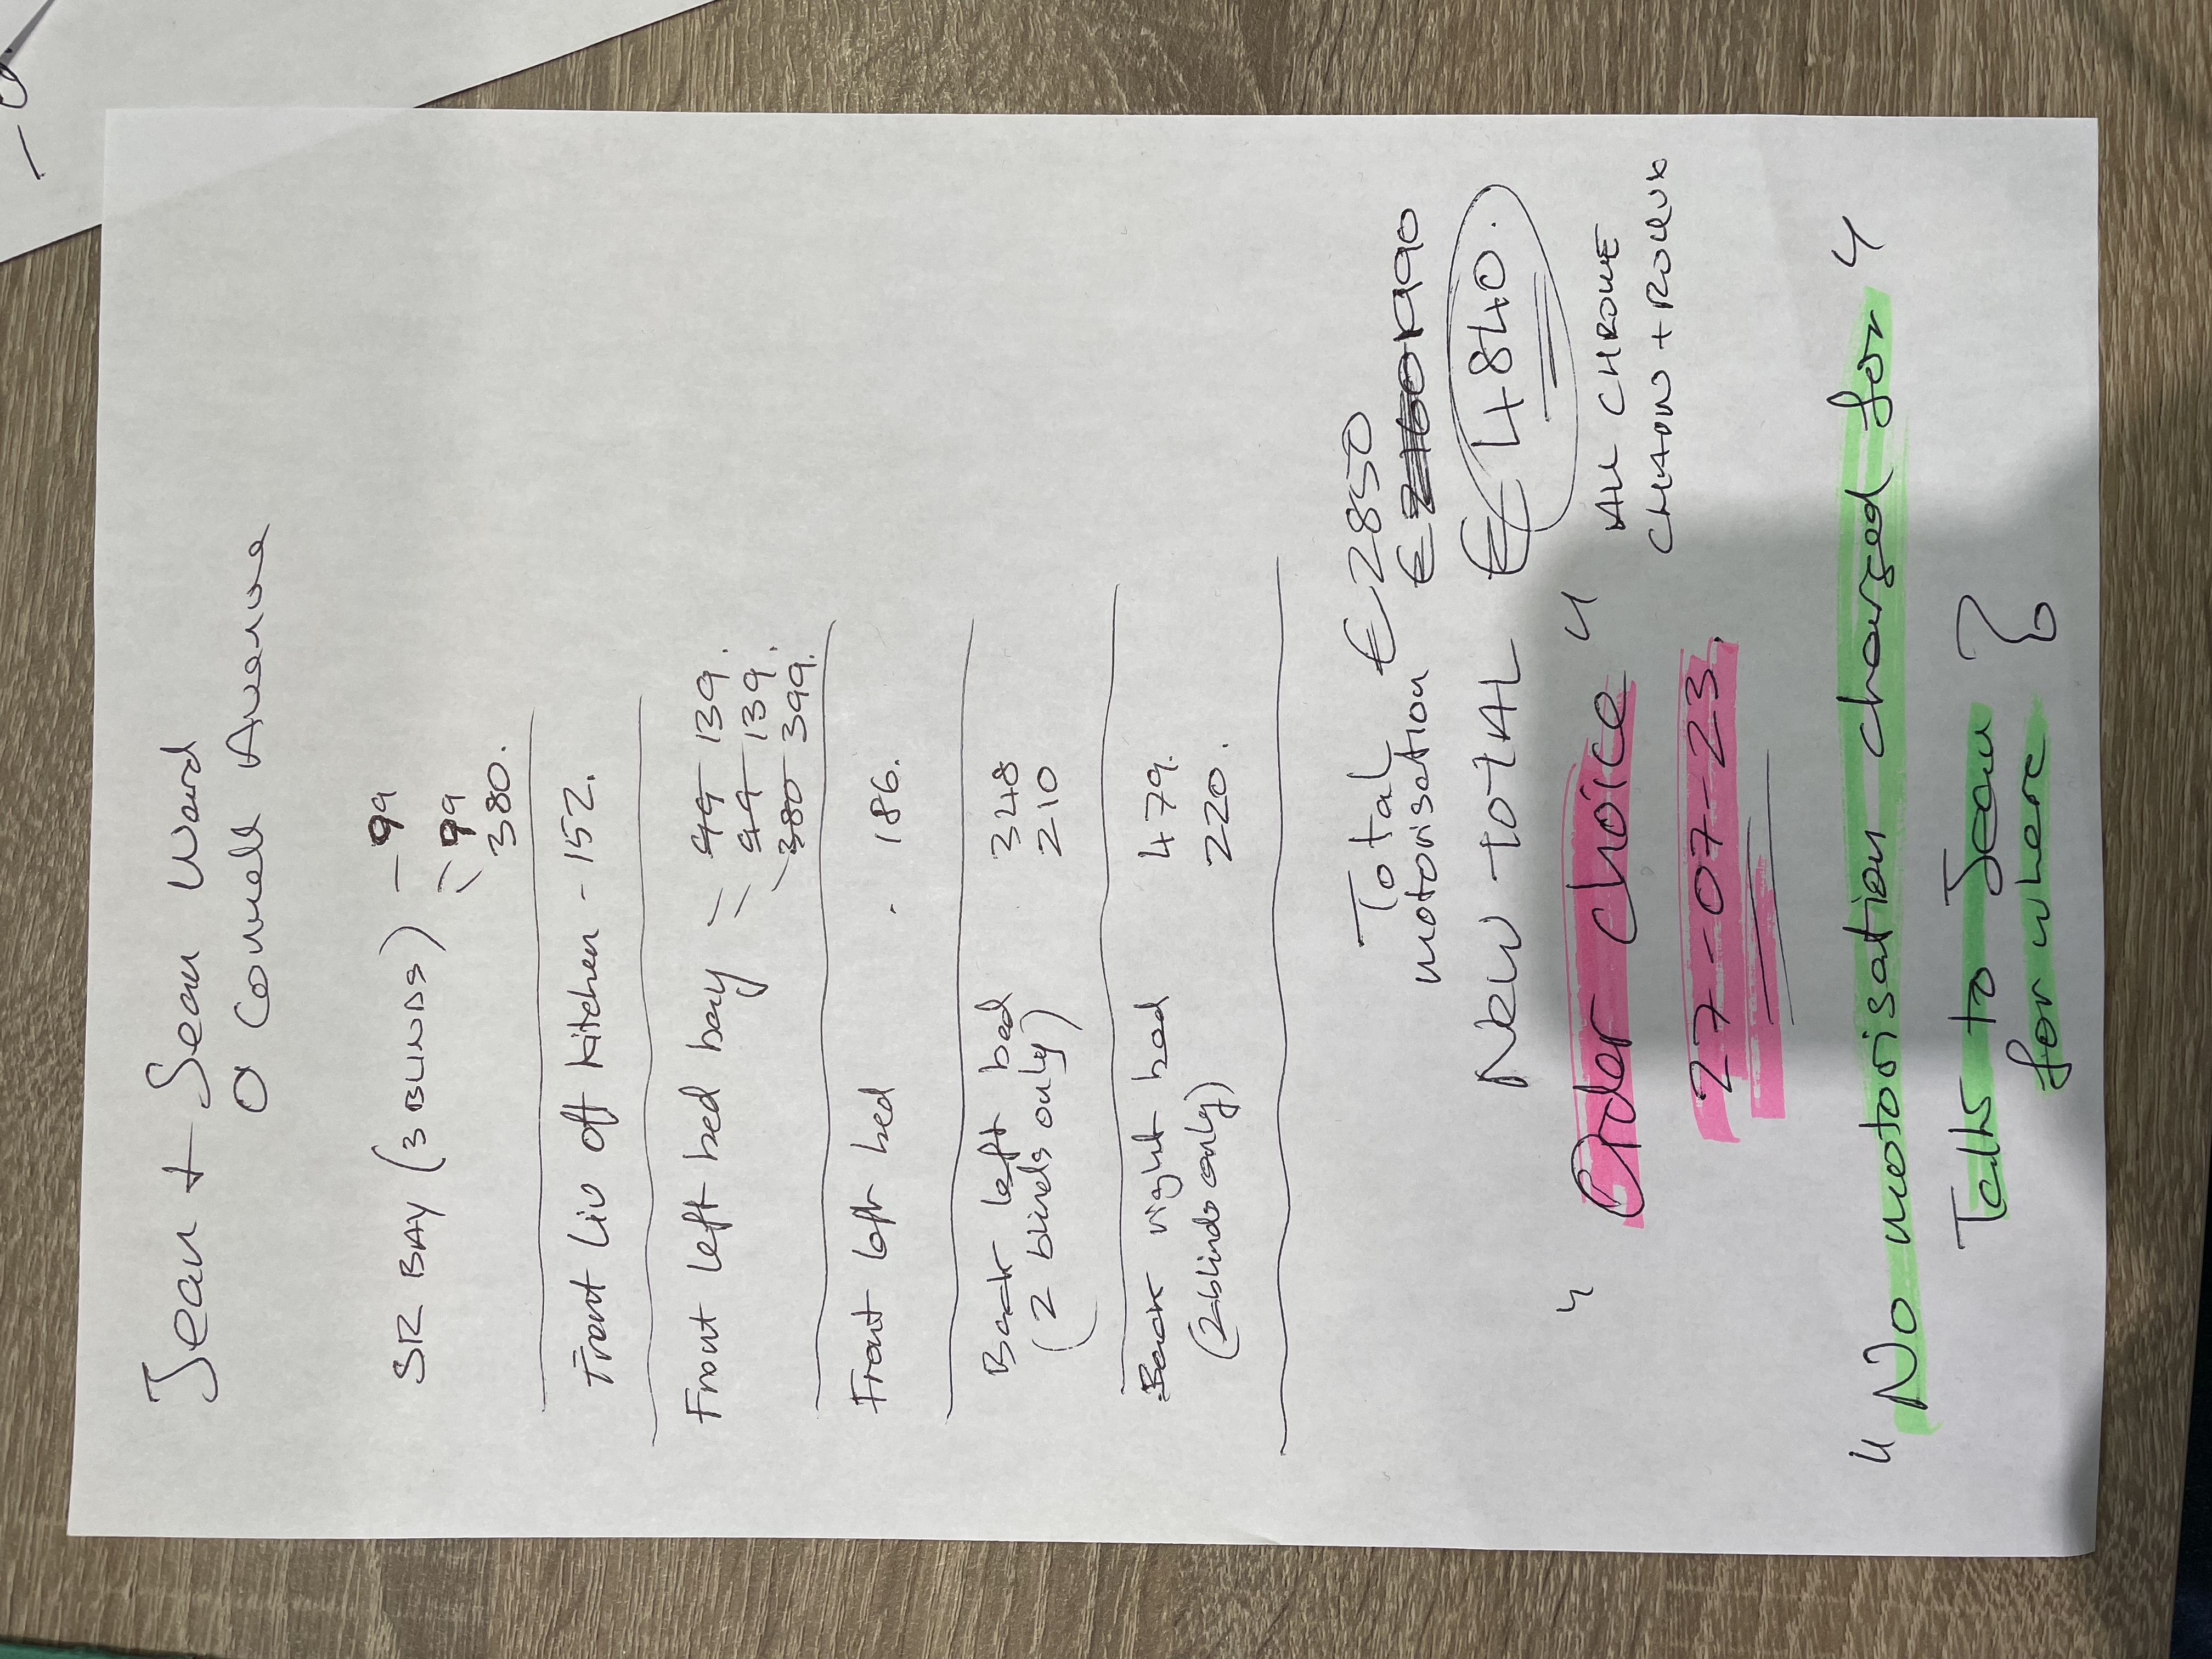 Jean + Sean Ward
O Connell Avenue
SR BAY (3 BLINDS) - 99
- 99
380.
Front Liv off kitchen - 152.
Front left bed bay - 99 139.
- 99 139.
- 380 399.
Front left bed . 186.
Back left bed 348
(2 blinds only) 210
Back right bed 479.
(2 blinds only) 220.
Total €2850
motorisation € 1990
New TOTAL € 4840.
" Order choice " ALL CHROME
27-07-23. CHAIN +
" No motorisation charged for "
Talk to Sean
for where ?